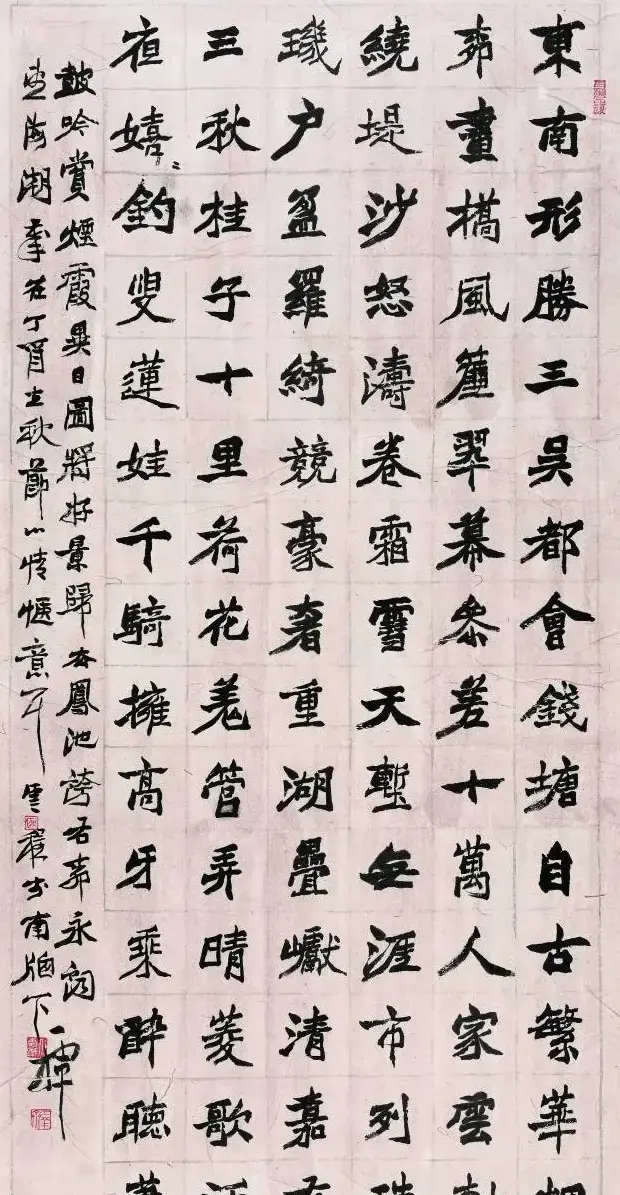 東南形勝三吳都會錢塘自古繁華
柳畫橋風簾翠幕參差十萬人家雲
繞堤沙怒濤卷霜雪天塹無涯市列
璣戶盈羅綺競豪奢重湖疊巘清嘉
三秋桂子十里荷花羌管弄晴菱歌
夜嬉〻釣叟蓮娃千騎擁高牙乘醉聽
鼓吟賞煙霞異日圖將好景歸去鳳池誇右柳永詞
望海潮 丁酉立秋節心情愜意 書南牕下